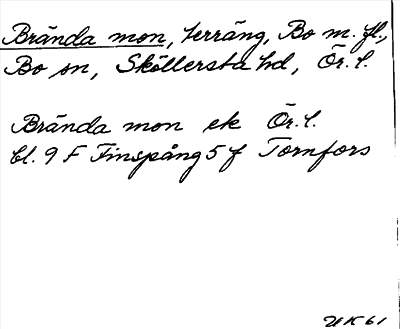 Brända mon, terräng, Bo m. fl.,
Bo sn, Sköllersta hd, Ör. l.
Brända mon ek Ör. l.
bl. 9 F Finspång 5 f Tornfors
UK 61